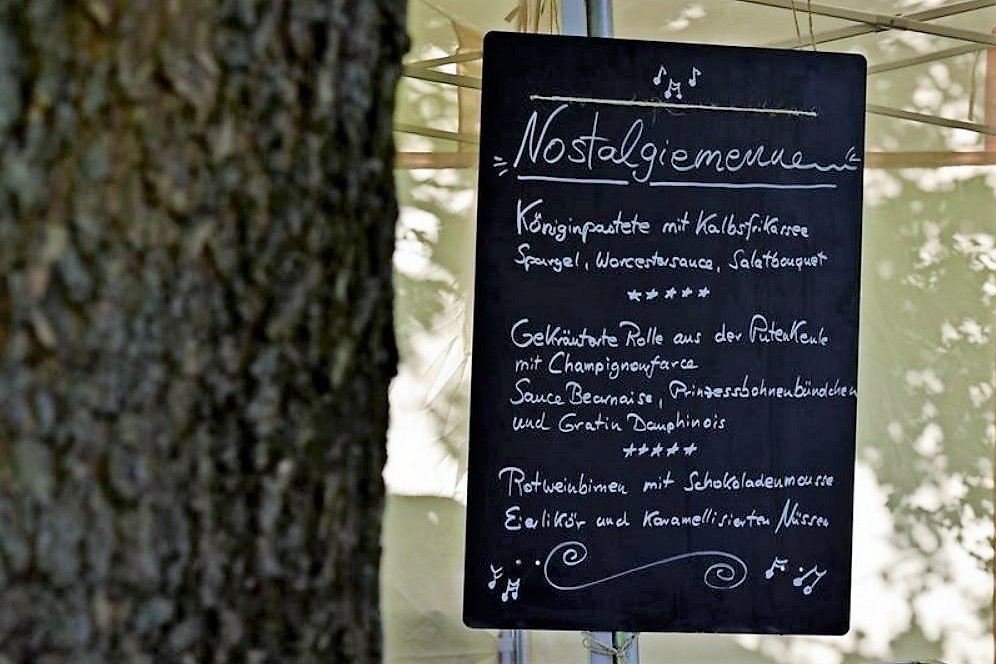 Nostalgiemenue
Königinpastete mit Kalbsfrikassee
Spargel, Worcestersauce, Salatbouquet
Gekräuterte Rolle aus der Putenkeule
mit Champignonfarce
Sauce Bearnaise, Prinzessbohnenbündchen
und Gratin Dauphinois
Rotweinbirnen mit Schokoladenmousse
Eierlikör und Karamellisierten Nüssen